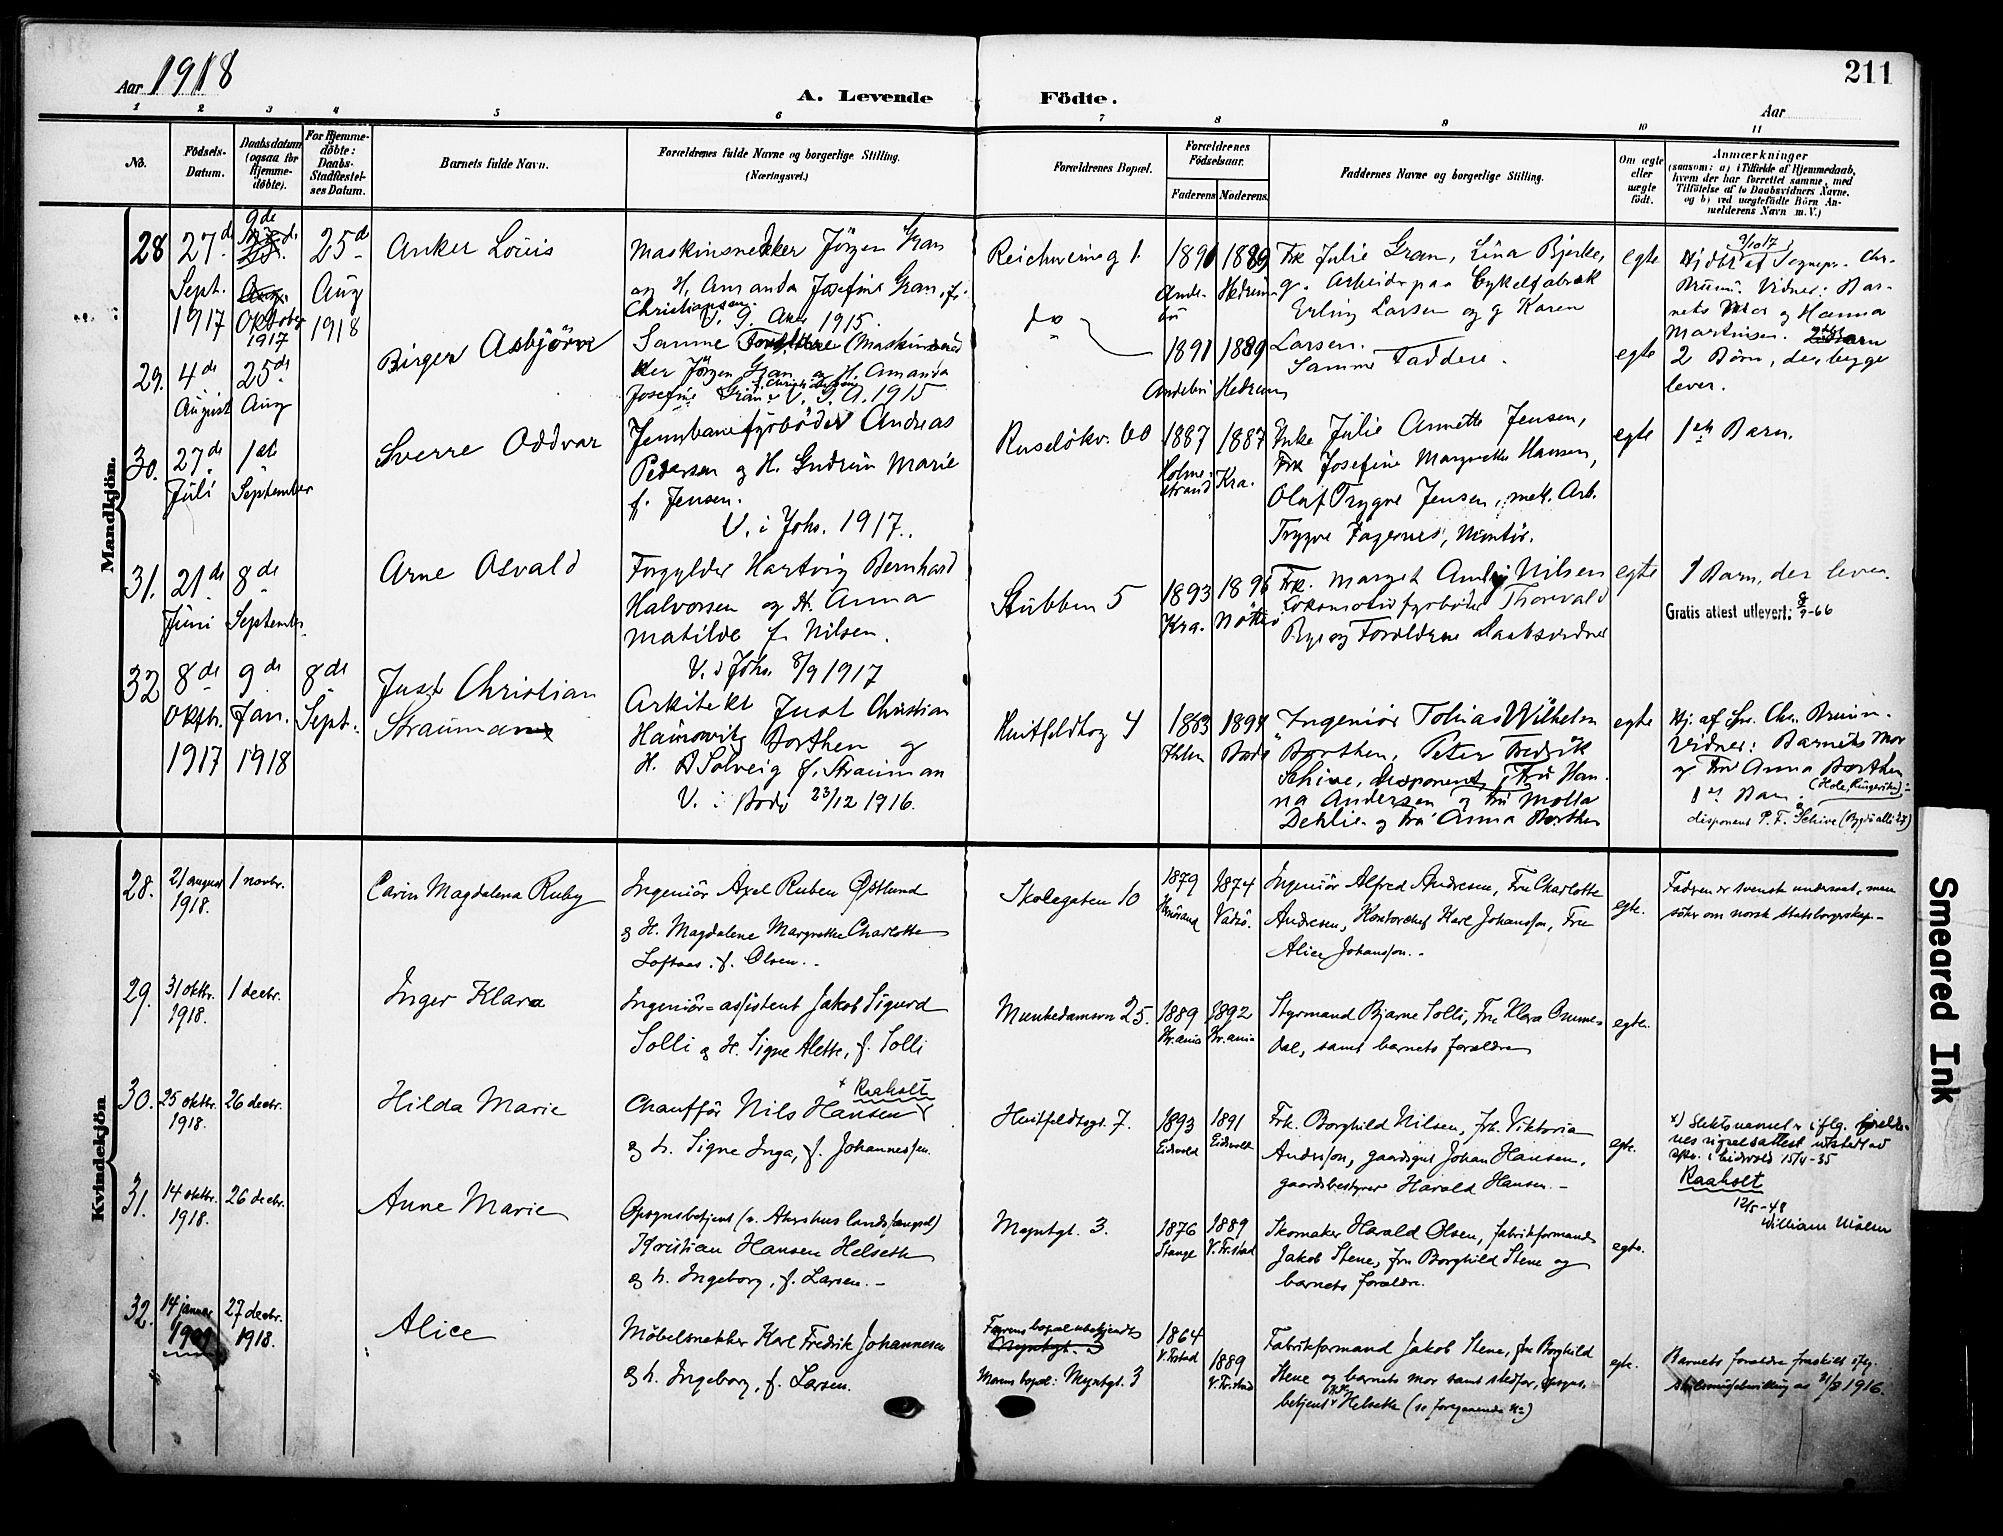 211
Aar 1918
A. Levende Födte.
Aar
1 2 3 4 5 6 7 8 9 10 11
No.
Födsels-
Datum.
Daabsdatum
(ogsaa for
Hjemme-
døbte).
For Hjemme-
døbte:
Daabs-
Stadfæstel-
ses Datum.
Barnets fulde Navn.
Forældrenes fulde Navne og borgerlige Stilling.
(Næringsvei.)
Forældrenes Bopæl.
Forældrenes
Födselsaar.
Faderens Moderens.
Faddernes Navne og borgerlige Stilling.
Om ægte
eller
uægte
födt.
Anmærkninger
(saasom: a) i Tilfælde af Hjemmedaab,
hvem der har forrettet samme, med
Tilföielse af to Daabsvidners Navne,
og b) ved uægtefödte Börn An-
melderens Navn m. V.)
Mandkjön.
28
27de
Sept.
1917
9de
Oktober
1917
25de
Aug
1918
Anker Louis
Maskinsnekker Jörgen Gran
og H. Amanda Josefine Gran, f.
Christiansen.
V. J. Aker 1915.
Reichweinsg 1.
Ande-
bu
1889
Hedrum
Frk Julie Gran, Lina Bjerke,
g. Arbeider paa Cykelfabrik
Erling Larsen og g Karen
Larsen.
egte
9/10 17
Hjdbt af Sognepr. Chr.
Bruun. Vidner: Bar-
nets Mor og Hanna
Martinsen.
29.
4de
August
25de
Aug
Birger Asbjörn
Samme Forældre (Maskinsnek
ker Jörgen Gran og H. Amanda
Josefine Gran f. Christiansen V. J. A. 1915
do
1891
Andebu
1889
Hedrum
Samme Faddere.
egte
2 Børn, der begge
lever.
30.
27de
Juli
1ste
September
Sverre Oddvar
Jernbanefyrbøder Andreas
Pedersen og H. Gudrun Marie
f. Jensen.
V. i Johs. 1917.
Ruseløkv. 60
1887
Holme-
strand
1887
Kra.
Enke Julie Annette Jensen,
Frk Josefine Margrethe Hansen,
Olaf Trygve Jensen, mek. Arb.
Trygve Fagernes, Montør.
egte
1ste Barn.
31.
21de
Juni
8de
September
Arne Osvald
Forgylder Hartvig Bernhard
Halvorsen og H. Anna
Matilde f. Nilsen.
V. i Johs. 8/9 1917
Stubben 5
1893
Kra.
1896
Nötterö
Frk. Margit Nilsen
Lokomotivfyrbøder Thorvald
Bye og Forældrene Daabsvidner
egte
1 Barn, der lever.
Gratis attest utlevert: 8/9-66
32
8de
Oktbr.
1917
9de
Jan.
1918
8de
Sept.
Just Christian
Strauman
Arkitekt Just Christian
Borthen og
H. Solveig f. Strauman
V. i Bodø 23/12 1916.
Huitfeldtsg 4
Bodö
Ingeniör Tobias Wilhelm
Borthen, Peter Fredrik
Schive, disponent, Fru Han-
na Andersen og fru Molla
Dehlie og fru Anna Borthen
egte
Hj. af Chr. Bruun.
Vidner: Barnets Mor
og Fru Anna Borthen
1ste Barn (Hole, Ringerike)
disponent P. F. Schive (Bygdö allé 27)
Kvindekjön
28.
21 august
1918.
1 novbr.
Carin Magdalena Ruby
Ingeniör Axel Ruben Østlund
og H. Magdalene Margrethe Charlotte
Loftaas, f. Olsen.
Skolegaten 10
1879
1874
Vadsö.
Ingeniör Alfred Andresen, Fru Charlotte
Andresen, Kontorchef Karl Johansson, Fru
Alice Johansson.
egte.
Fadren er svensk undersaat, men
söker om norsk statsborgerskap.
29.
31 oktbr.
1918.
1 decbr.
Inger Klara
Ingeniör-assistent Jakob Sigurd
Solli og H. Signe Alette, f. Solli
Munkedamsvn 25.
1889
Kr.ania
1892
Kr.ania
Styrmand Bjarne Solli, Fru Klara Omme-
dal, samt barnets forældre
egte.
30.
25 oktbr.
1918.
26 decbr.
Hilda Marie
Chauffør Nils Hansen x Raaholt
og h. Signe Inga, f. Johannessen.
Huitfeldtsgt. 7.
1893
Eidsvold
1891
Eidsvold
Frk. Borghild Nilsen, frk. Viktoria
Andresson, gaardsgut Johan Hansen,
gaardsbestyrer Harald Hansen.
egte.
x) Slektsnavnet er iflg. foreldre-
nes vigselsattest utstedt av
i Eidsvold 15/4-35
Raaholt
12/5-48
William Mölen
31.
14 oktbr.
1918.
26 decbr.
Anne Marie
Opsynsbetjent (v. Akershus landsfængsel)
Kristian Hansen Helseth
og h. Ingeborg, f. Larsen.
Myntgt. 3.
1876
Stange
1889
V. Fr.stad
Skomaker Harald Olsen, fabrikformand
Jakob Stene, fru Borghild Stene og
barnets forældre.
egte.
32.
14 januar
27 decbr.
1918.
Alice
Möbelsnekker Karl Fredrik Johannesen
og h. Ingeborg, f. Larsen.
Farens bopæl ubekjendt
Myntgt. 3
Morens bopæl: Myntgt. 3
1864
V. Frstad
1889
V. Fr.stad
Fabrikformand Jakob Stene, fru Borghild
Stene og barnets mor samt stedfar, opsyns-
betjent Helseth (se foregaaende No)
egte.
Barnets forældre fraskilt iflg.
skilsmissebevilling av 31/8 1916.
Smeared Ink